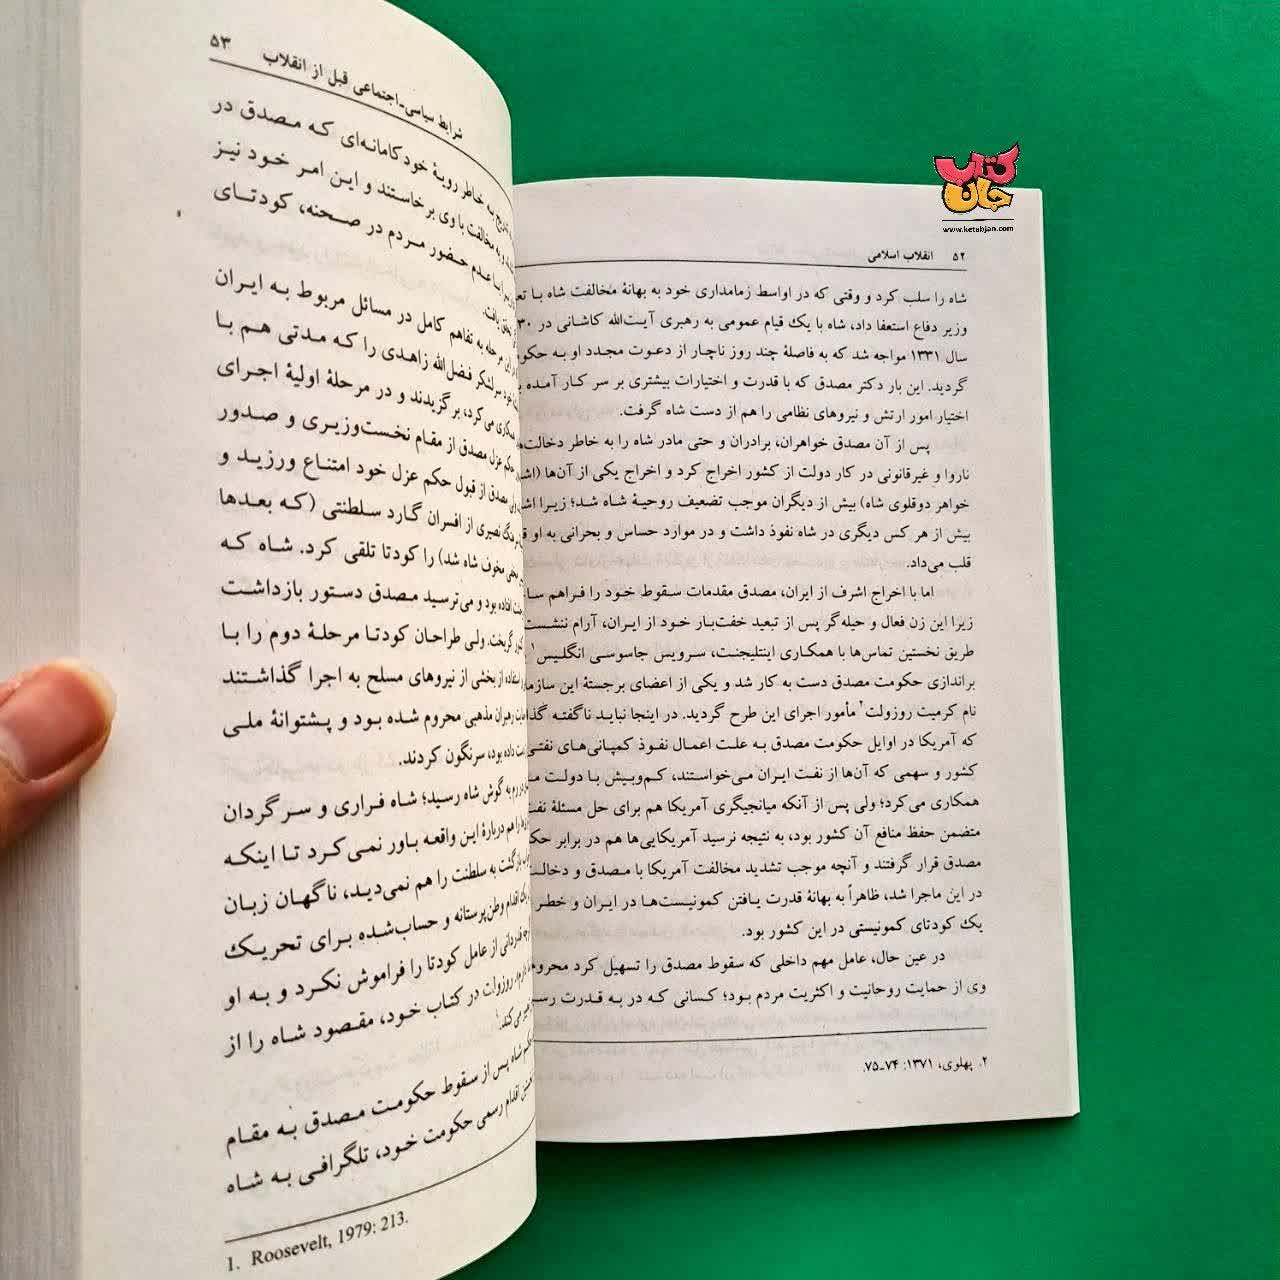 کتاب
جان
www.ketabjan.com
۵۲ انقلاب اسلامی
شاه را سلب کرد و وقتی که در اواسط زمامداری خود به بهانهٔ مخالفت شاه با
وزیر دفاع استعفا داد، شاه با یک قیام عمومی به رهبری آیت‌الله کاشانی در ۳۰
سال ۱۳۳۱ مواجه شد که به فاصلهٔ چند روز ناچار از دعوت مجدد او به
گردید. این بار دکتر مصدق که با قدرت و اختیارات بیشتری بر سر کار آمده
اختیار امور ارتش و نیروهای نظامی را هم از دست شاه گرفت.
پس از آن مصدق خواهران، برادران و حتی مادر شاه را به خاطر
ناروا و غیرقانونی در کار دولت از کشور اخراج کرد و اخراج یکی از آن‌ها
خواهر دوقلوی شاه) بیش از دیگران موجب تضعیف روحیهٔ شاه شد؛ زیرا
بیش از هر کس دیگری در شاه نفوذ داشت و در موارد حساس و بحرانی به او
قلب می‌داد.
اما با اخراج اشرف از ایران، مصدق مقدمات سقوط خود را فراهم
زیرا این زن فعال و حیله‌گر پس از تبعید خفت‌بار خود از ایران، آرام ننشست
طریق نخستین تماس‌ها با همکاری اینتلیجنت، سرویس جاسوسی انگلیس۱
براندازی حکومت مصدق دست به کار شد و یکی از اعضای برجستهٔ این
نام کرمیت روزولت۲ مأمور اجرای این طرح گردید. در اینجا نباید ناگفته
که آمریکا در اوایل حکومت مصدق به علت اعمال نفوذ کمپانی‌های نفتی
کشور و سهمی که آن‌ها از نفت ایران می‌خواستند، کم‌وبیش با دولت
همکاری می‌کرد؛ ولی پس از آنکه میانجیگری آمریکا هم برای حل مسئلهٔ نفت
متضمن حفظ منافع آن کشور بود، به نتیجه نرسید آمریکایی‌ها هم در برابر
مصدق قرار گرفتند و آنچه موجب تشدید مخالفت آمریکا با مصدق و
در این ماجرا شد، ظاهراً به بهانهٔ قدرت یافتن کمونیست‌ها در ایران و خطر
یک کودتای کمونیستی در این کشور بود.
در عین حال، عامل مهم داخلی که سقوط مصدق را تسهیل کرد
وی از حمایت روحانیت و اکثریت مردم بود؛ کسانی که در به قدرت
۲. پهلوی، ۱۳۷۱: ۷۴-۷۵.
شرایط سیاسی-اجتماعی قبل از انقلاب ۵۳
به خاطر رویهٔ خودکامانه‌ای که مصدق در
به مخالفت با وی برخاستند و این امر خود نیز
با عدم حضور مردم در صحنه، کودتای
یافت.
مرحله به تفاهم کامل در مسائل مربوط به ایران
خود سرلشکر فضل‌الله زاهدی را که مدتی هم با
همکاری می‌کرد، برگزیدند و در مرحلهٔ اولیهٔ اجرای
حکم عزل مصدق از مقام نخست‌وزیری و صدور
ولی مصدق از قبول حکم عزل خود امتناع ورزید و
نصیری از افسران گارد سلطنتی (که بعدها
مخوف شاه شد) را کودتا تلقی کرد. شاه که
افتاده بود و می‌ترسید مصدق دستور بازداشت
گریخت. ولی طراحان کودتا مرحلهٔ دوم را با
استفاده از بخشی از نیروهای مسلح به اجرا گذاشتند
رهبران مذهبی محروم شده بود و پشتوانهٔ ملی
داده بود، سرنگون کردند.
در رم به گوش شاه رسید؛ شاه فراری و سرگردان
را هم دربارهٔ این واقعه باور نمی‌کرد تا اینکه
بازگشت به سلطنت را هم نمی‌دید، ناگهان زبان
یک اقدام وطن‌پرستانه و حساب‌شده برای تحریک
قدردانی از عامل کودتا را فراموش نکرد و به او
روزولت در کتاب خود، مقصود شاه را از
می‌کند.۱
شاه پس از سقوط حکومت مصدق به مقام
اقدام رسمی حکومت خود، تلگرافی به شاه
1. Roosevelt, 1979: 213.